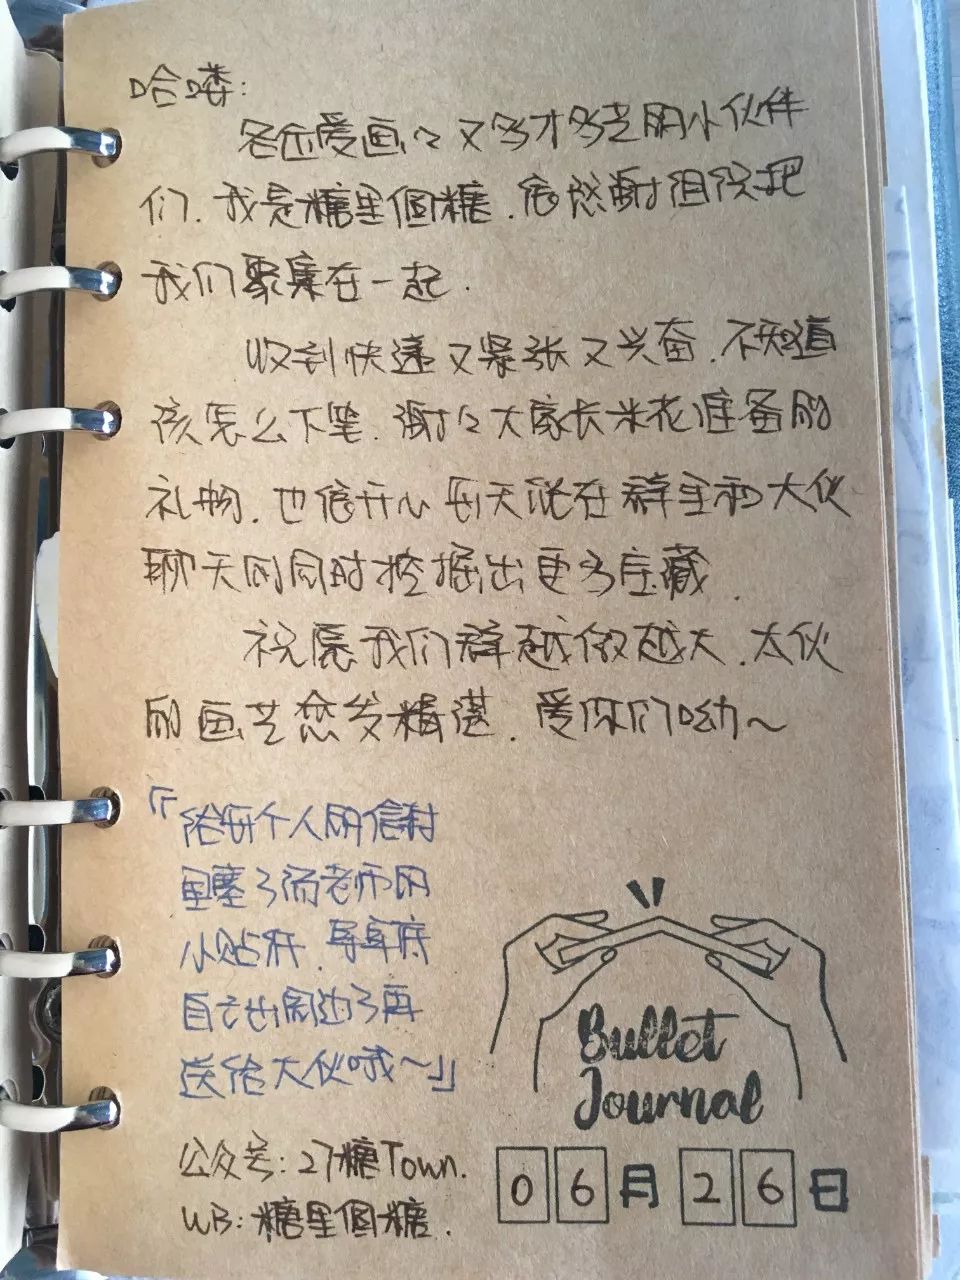 哈喽:
各位爱画々又多才多艺的小伙伴
们.我是糖里個糖.感谢组织把
我们聚集在一起.
收到快递又紧张又兴奋.不知道
该怎么下笔.谢々大家长米花准备的
礼物.也很开心每天能在群里和大伙
聊天的同时挖掘出更多宝藏.
祝愿我们群越做越大.大伙
的画艺愈发精湛.爱你们呦~
「给每个人的信封
里塞了汤老师的
小贴纸.等身体
自己出周边了再
送给大伙哦~」
公众号:27糖Town.
WB:糖里個糖.
Bullet
Journal
06月26日